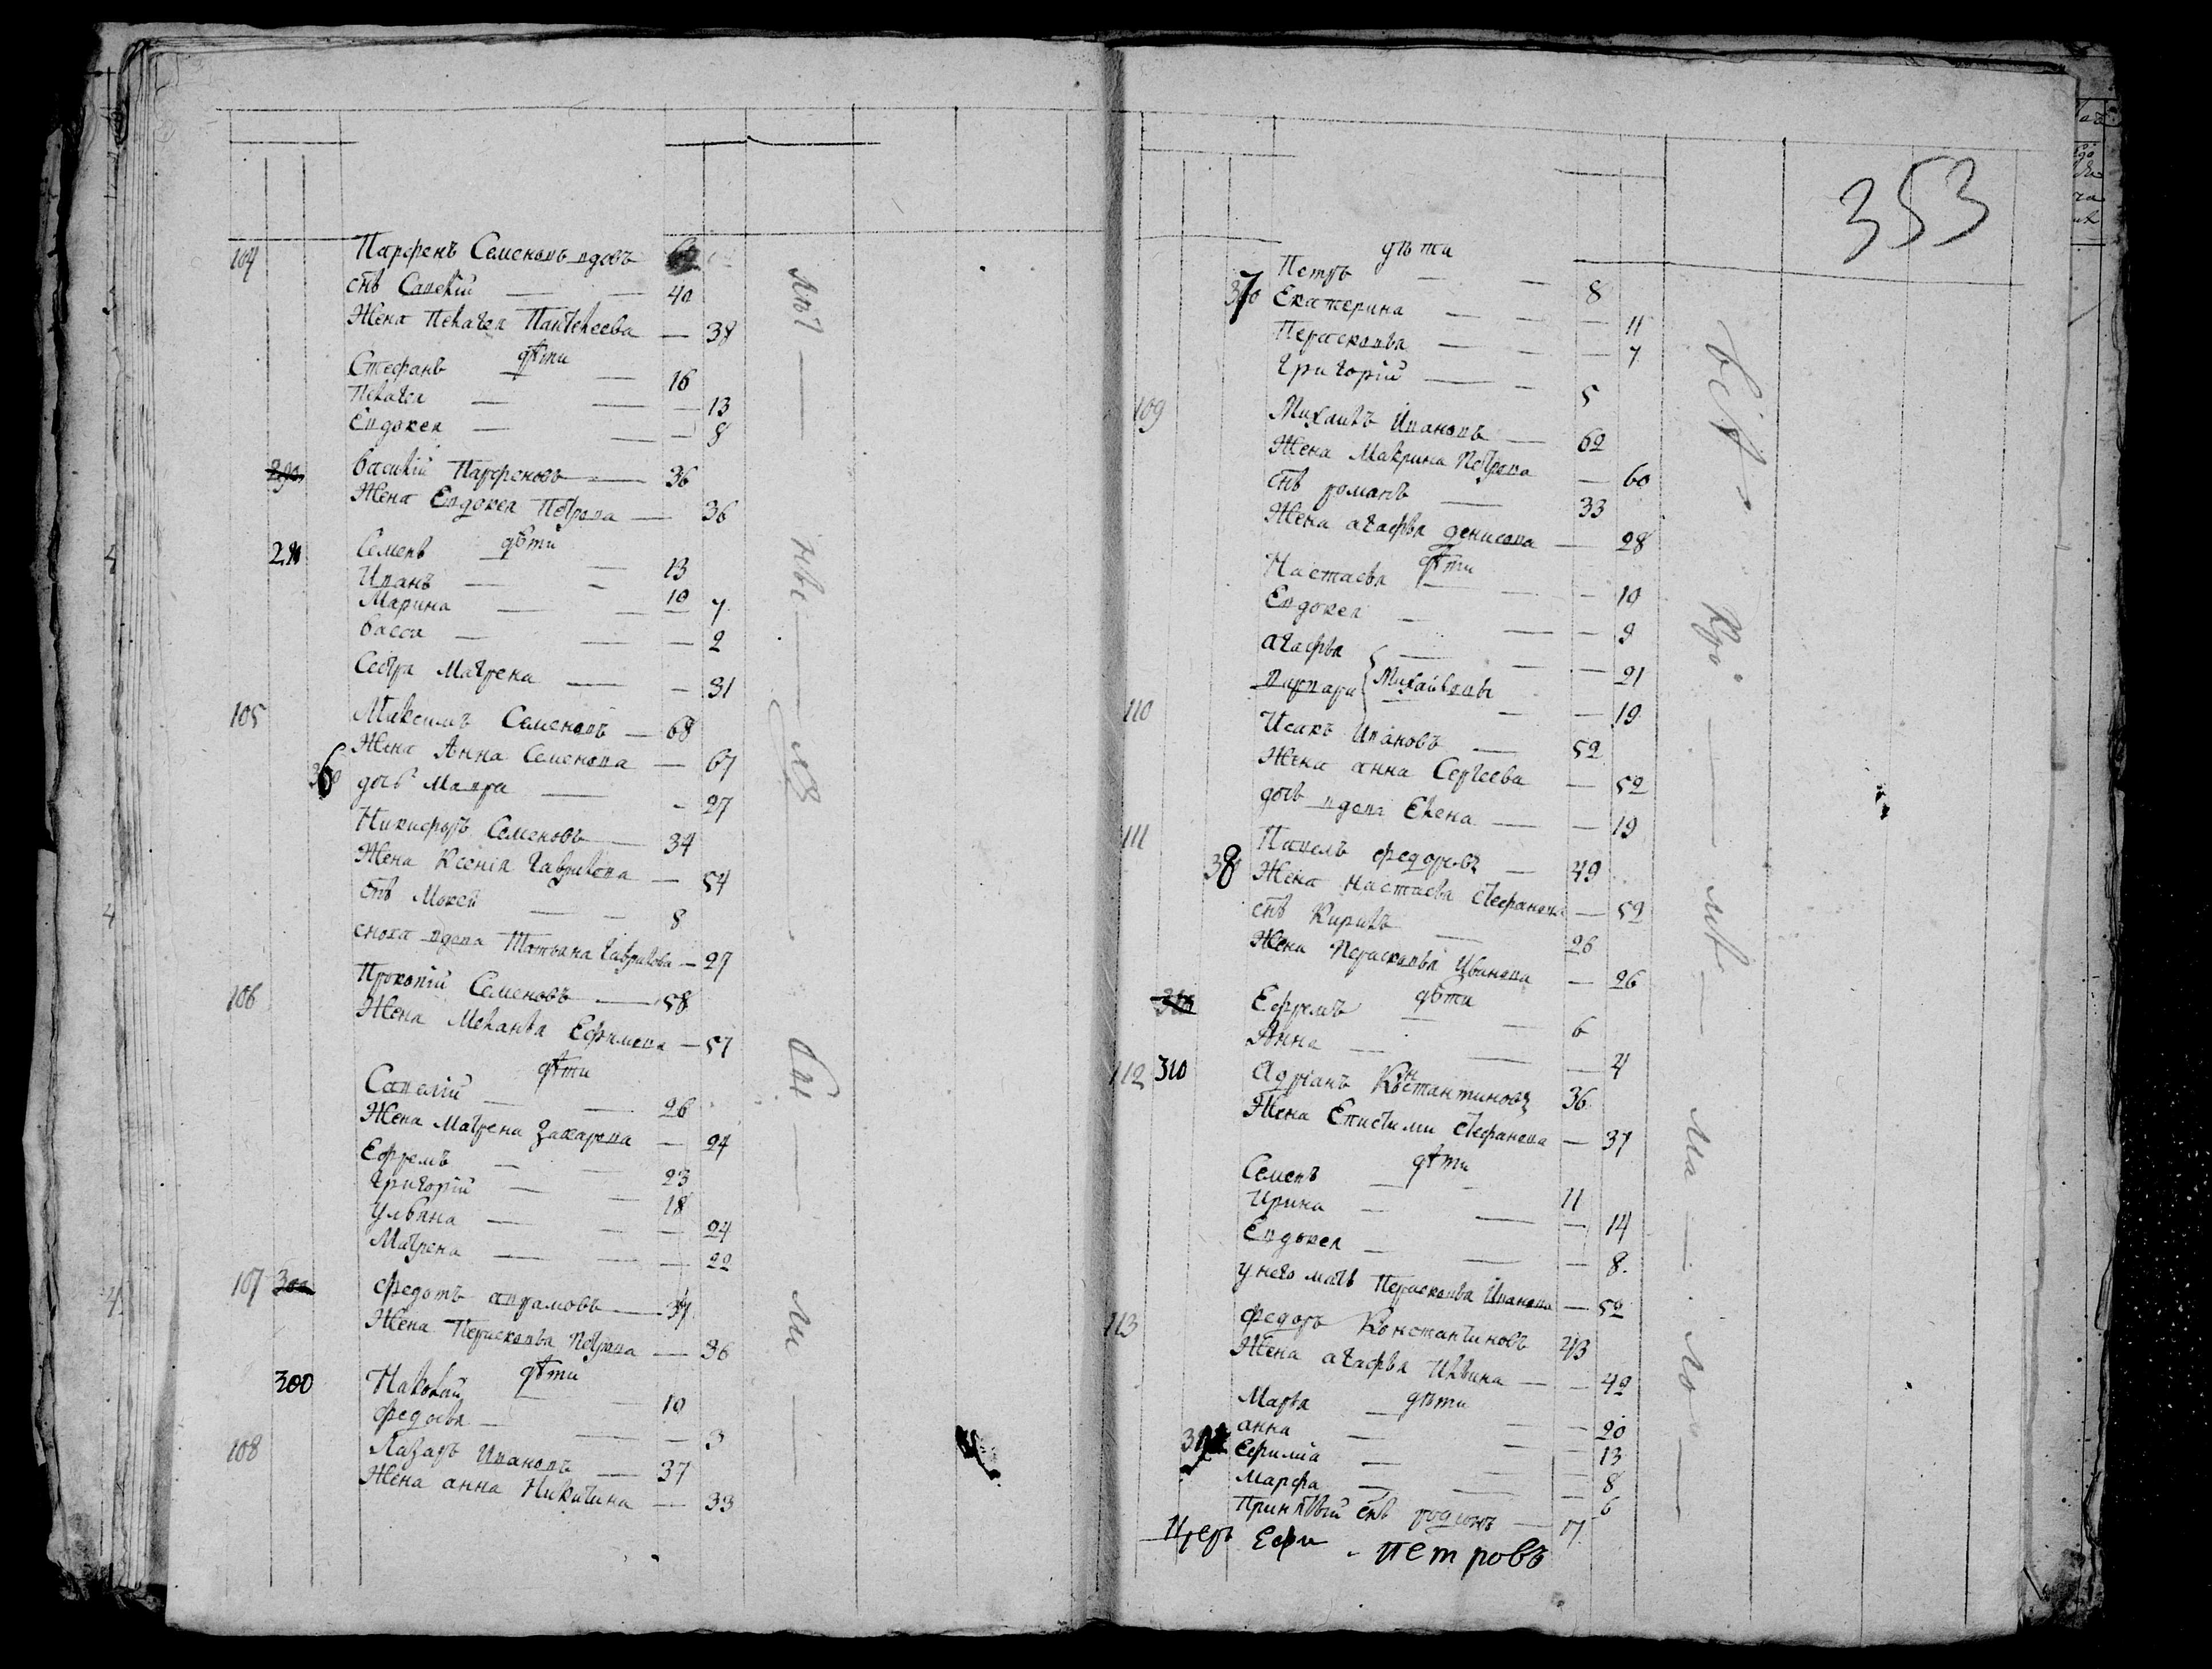 104 Парфенъ Семеновъ вдовъ
снъ Савелій — 40
Жена Пелагея Пантелеева — 38
дѣти
Стефанъ — 16
Пелагея — 13
Евдокея — 8
290 Василій Парфеновъ — 36
Жена Евдокея Петрова — 36
дѣти
Семенъ — 13
Иванъ — 10
Марина — 7
Васса — 2
Сестра Матрена — 31
105 Максимъ Семеновъ — 68
Жена Анна Семенова — 67
дочь Мавра — 27
Никифоръ Семеновъ — 34
Жена Ксенія Гаврилова — 54
снъ Мокей — 8
сноха вдова Татьяна Гаврилова — 27
106 Прокопій Семеновъ — 58
Жена Меланья Ефимова — 57
дѣти
Савелій — 26
Жена Матрена Захарова — 24
Ефремъ — 23
Григорій — 18
Ульяна — 24
Матрена — 22
107 300 Федотъ Аврамовъ — 37
Жена Перасковья Петрова — 36
дѣти
300 Николай — 10
Федосья — 3
108 Лазарь Ивановъ — 37
Жена анна Никитина — 33
353
дѣти
Петръ — 8
Екатерина — 11
Перасковья — 7
Григорій — 5
109 Михаилъ Ивановъ — 62
Жена Макрина Петрова — 60
снъ романъ — 33
Жена агафья денисова — 28
дѣти
Настасья — 10
Евдокея — 9
агафья — 21
варвара Михайловы — 19
110 Исакъ Ивановъ — 52
Жена анна Сергеева — 52
дочь вдова Елена — 19
111 Павелъ федоровъ — 49
Жена Настасья Стефанова — 52
снъ Кирилъ — 26
Жена Перасковья Иванова — 26
дѣти
Ефремъ — 6
Анна — 4
112 310 Адріанъ Константиновъ 36
Жена Епистими Стефанова — 37
дѣти
Семенъ — 11
Ирина — 14
Евдокея — 8
у него мать Перасковья Иванова — 52
113 федоръ Константиновъ 43
Жена агафья Ильина — 42
дѣти
Марья — 20
анна — 13
Ефимиа — 8
Марфа — 6
Принятый снъ родіонъ — 17
Ефи петровъ